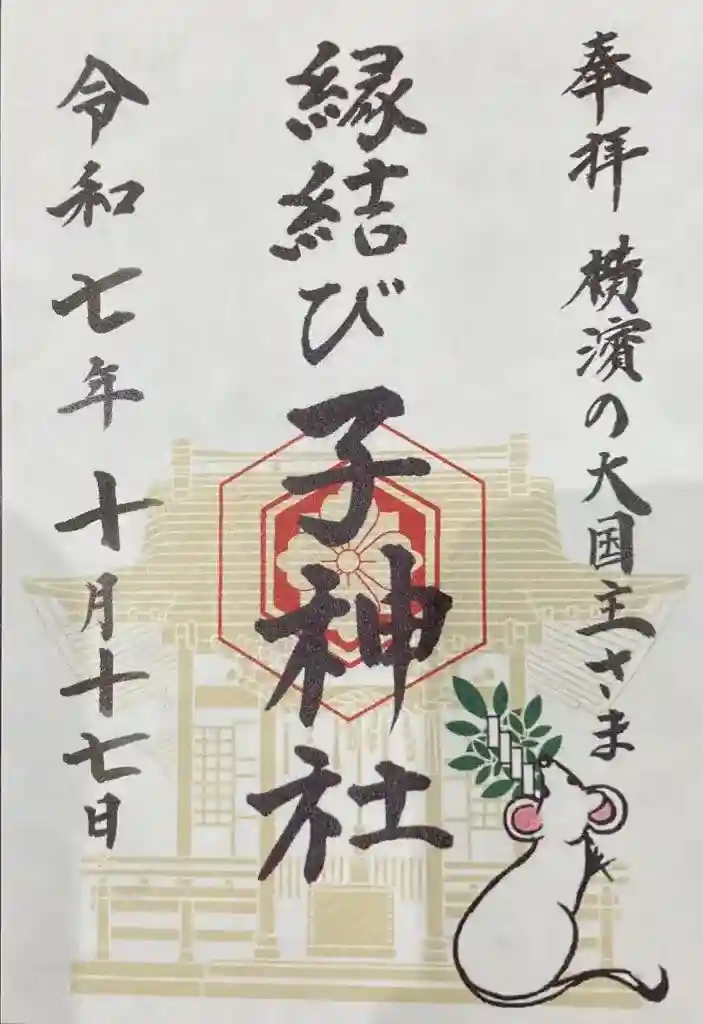 奉拝 横濱の大国主さま
縁結び 子神社
令和七年十月十七日